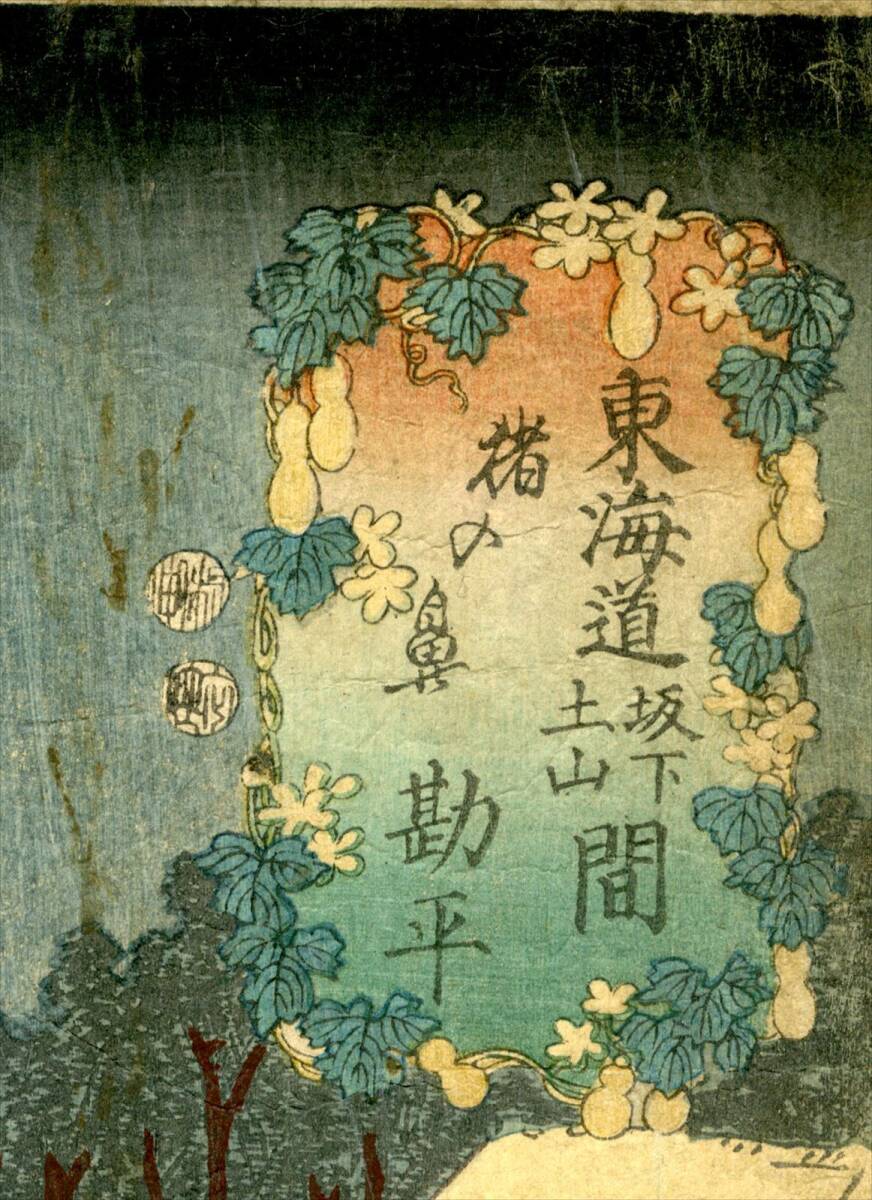 東海道
坂下
土山
間
猪の鼻
勘平